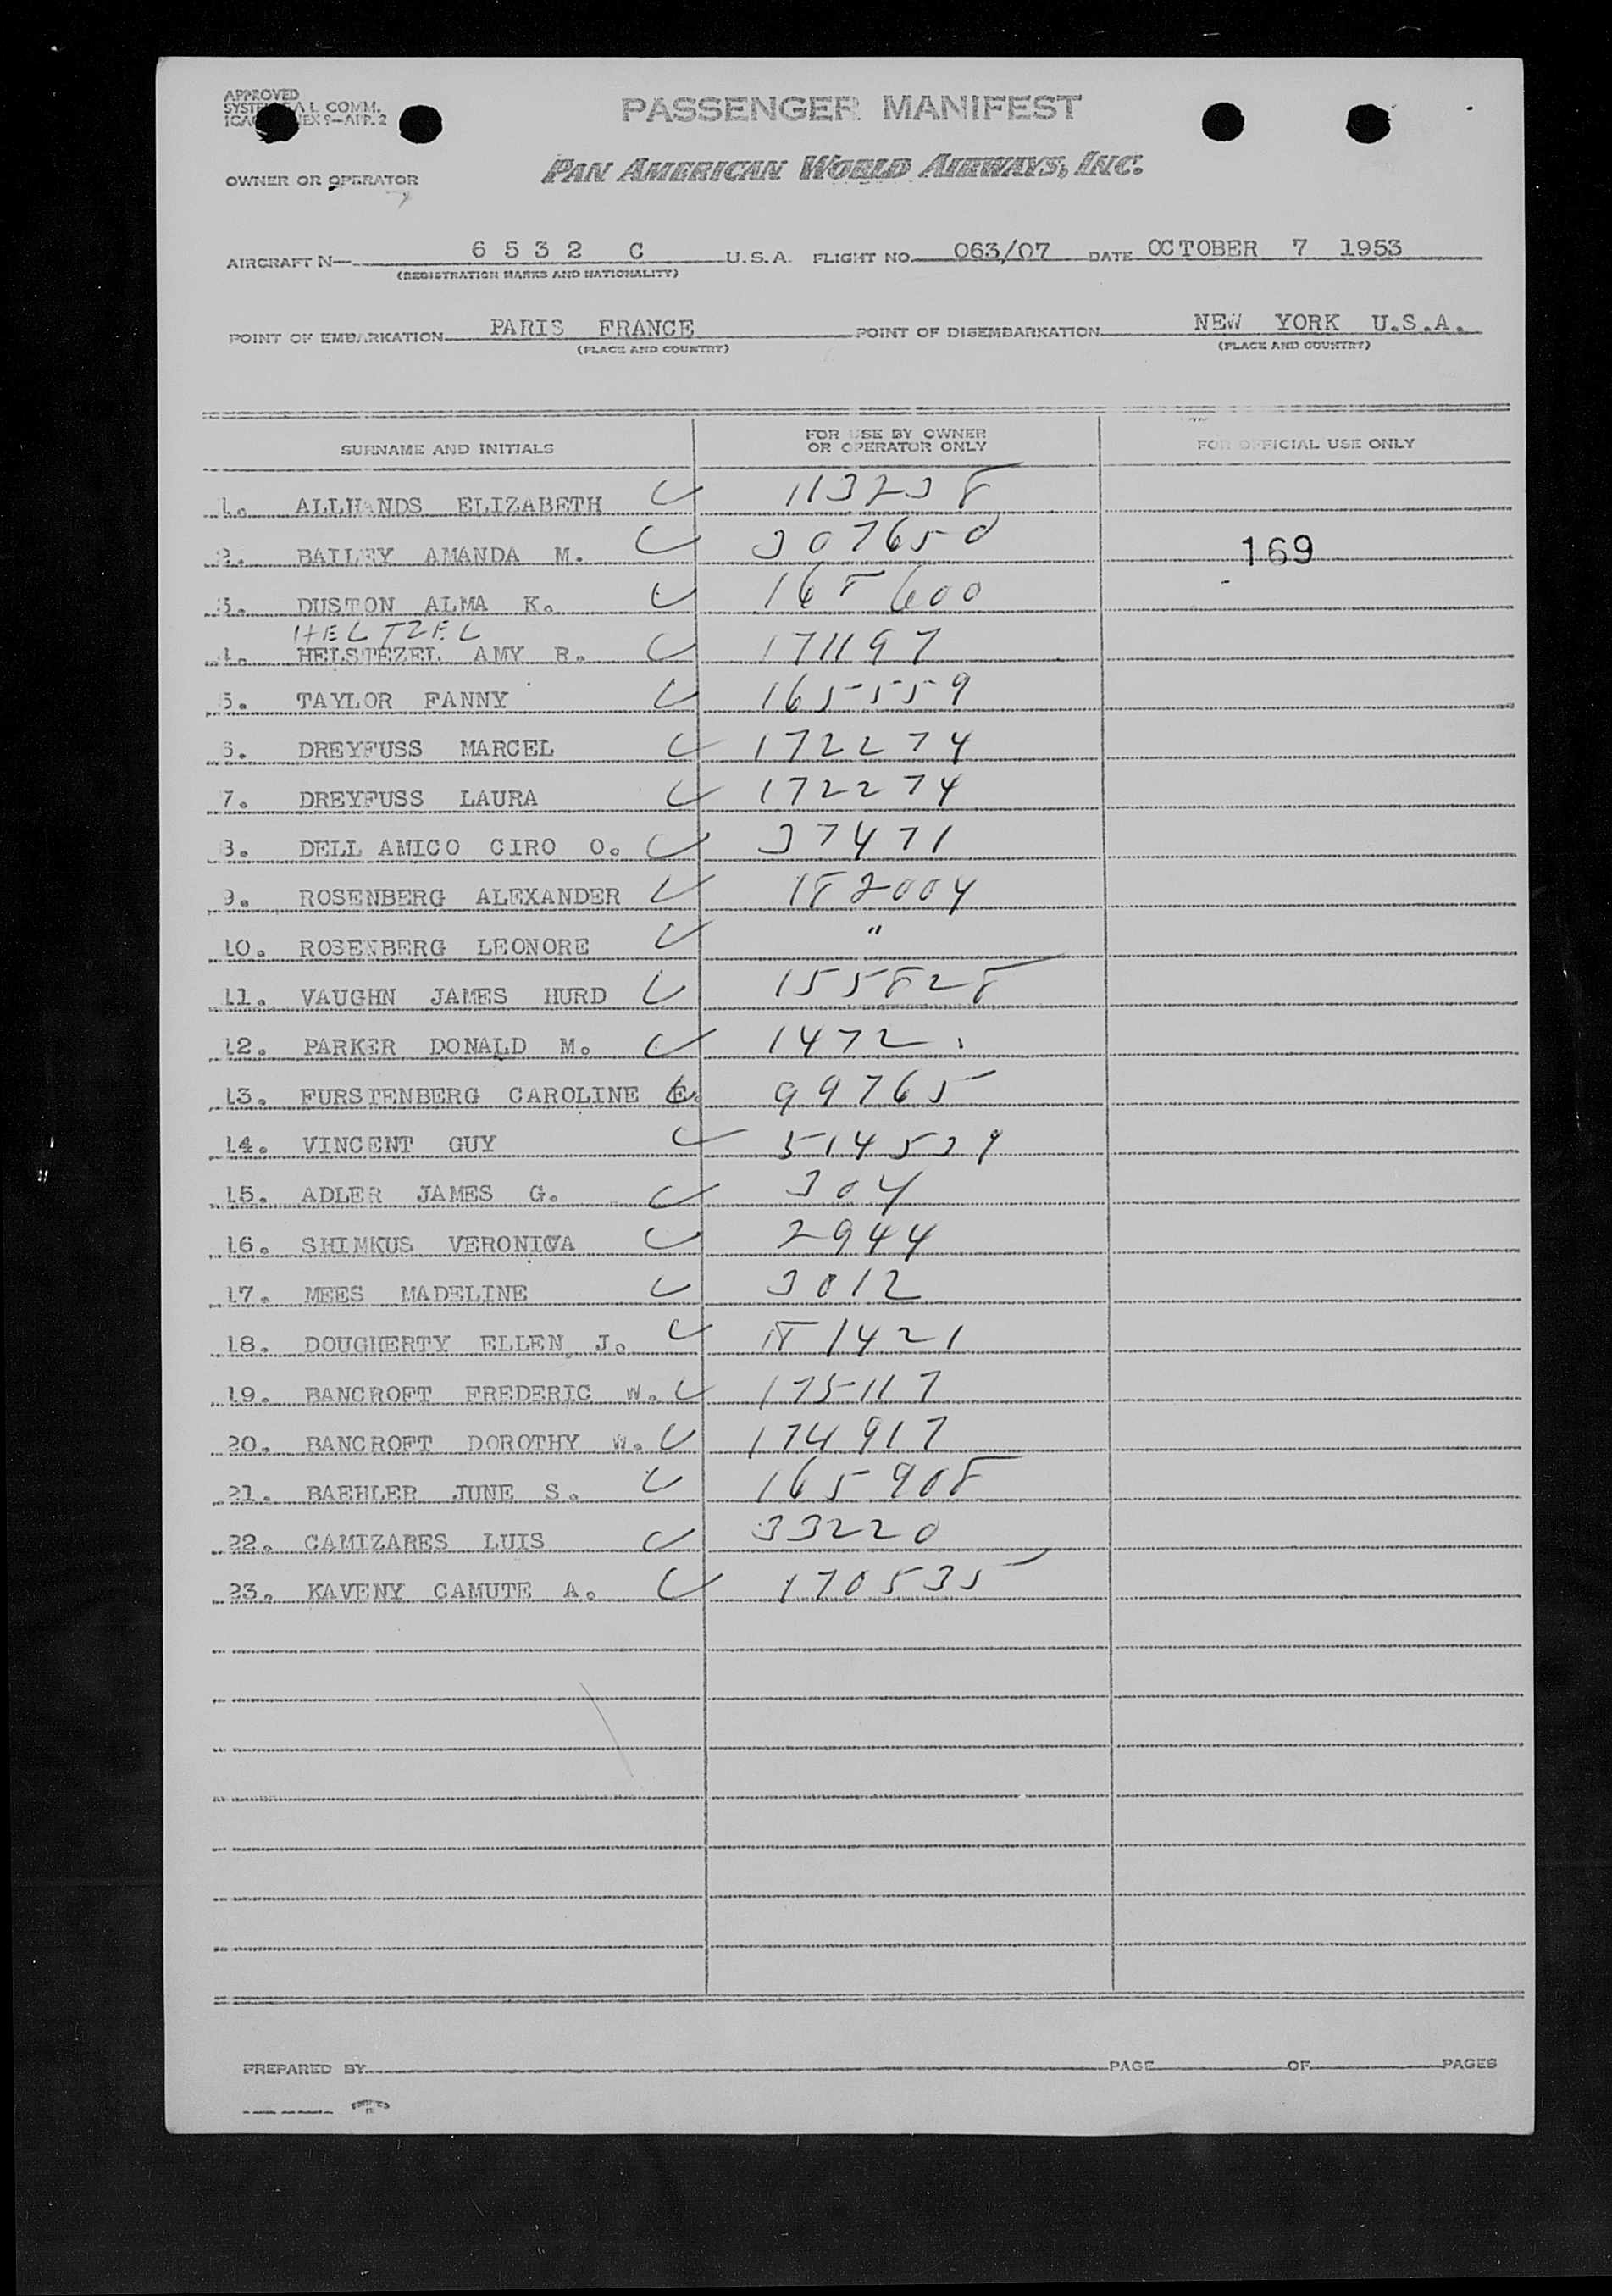 APPROVED
COMM.
PASSENGER MANIFEST
PAN AMERICAN WORLD AIRWAYS, INC.
OWNER OR OPERATOR
AIRCRAFT N- 6532 C U.S.A. FLIGHT NO. 063/07 DATE OCTOBER 7 1953
(REGISTRATION MARKS AND NATIONALITY)
POINT OF EMBARKATION PARIS FRANCE POINT OF DISEMBARKATION NEW YORK U.S.A.
(PLACE AND COUNTRY) (PLACE AND COUNTRY)
SURNAME AND INITIALS FOR USE BY OWNER OR OPERATOR ONLY FOR OFFICIAL USE ONLY
1. ALLHANDS ELIZABETH 113238
2. BAILEY AMANDA M. 307650 169
3. DUSTON ALMA K. 168600
HELTZEL
4. HELSTEZEL AMY R. 171197
5. TAYLOR FANNY 165559
6. DREYFUSS MARCEL 172274
7. DREYFUSS LAURA 172274
8. DELL AMICO CIRO O. 37471
9. ROSENBERG ALEXANDER 182004
10. ROSENBERG LEONORE "
11. VAUGHN JAMES HURD 155828
12. PARKER DONALD M. 1472
13. FURSTENBERG CAROLINE E. 99765
14. VINCENT GUY 514539
15. ADLER JAMES G. 304
16. SHIMKUS VERONICA 2944
17. MEES MADELINE 3012
18. DOUGHERTY ELLEN J.
19. BANCROFT FREDERIC W. 175117
20. BANCROFT DOROTHY W. 174917
21. BAEHLER JUNE S. 165908
22. CAMIZARES LUIS 33220
23. KAVENY CAMUTE A. 170535
PREPARED BY PAGE OF PAGES